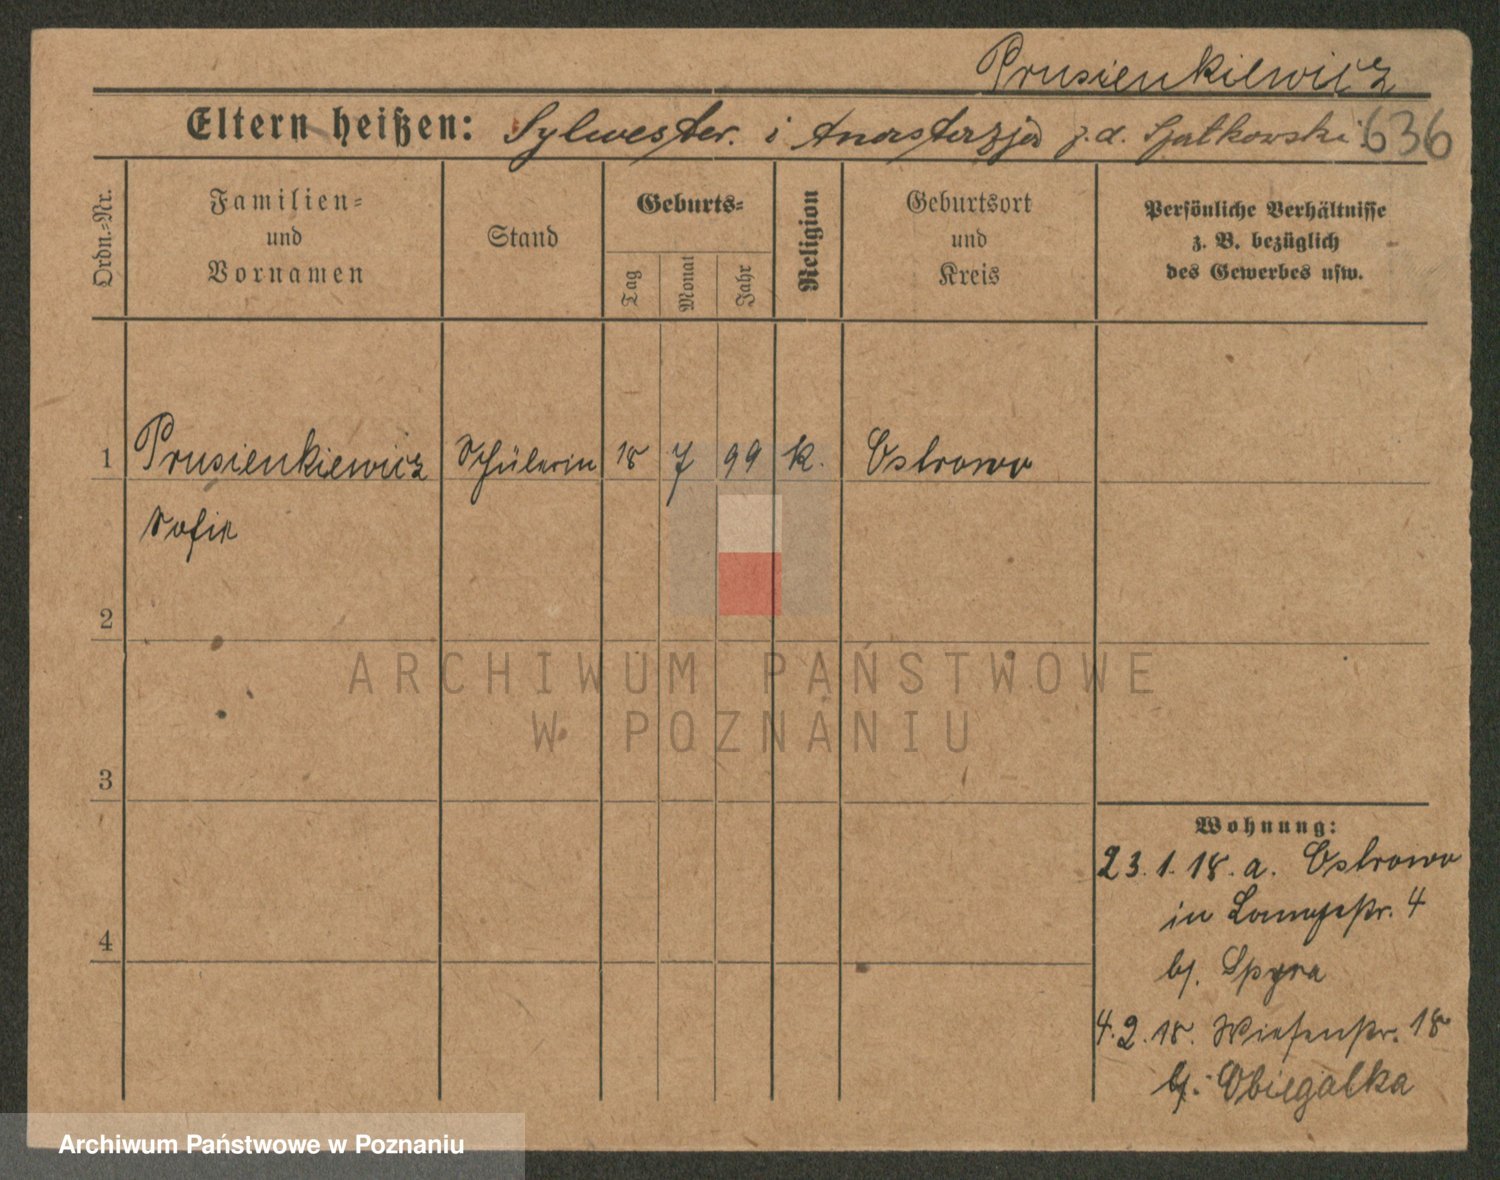 Prusienkiewicz
Eltern heißen: Sylwester i Anastazja z.d. Szatkowski 636
Ordn.-Nr.
Familien-
und
Vornamen
Stand
Geburts-
Tag
Monat
Jahr
Religion
Geburtsort
und
Kreis
Persönliche Verhältnisse
z. B. bezüglich
des Gewerbes usw.
1 Prusienkiewicz Schülerin 18 7 99 k. Ostrowo
Sofie
2
3
4
Wohnung:
23.1.18. a. Ostrowo
in Langestr. 4
b/. Spyra
4.2.18. Wiesenstr. 18
b/. Obiegalka
ARCHIWUM PAŃSTWOWE
W POZNANIU
Archiwum Państwowe w Poznaniu